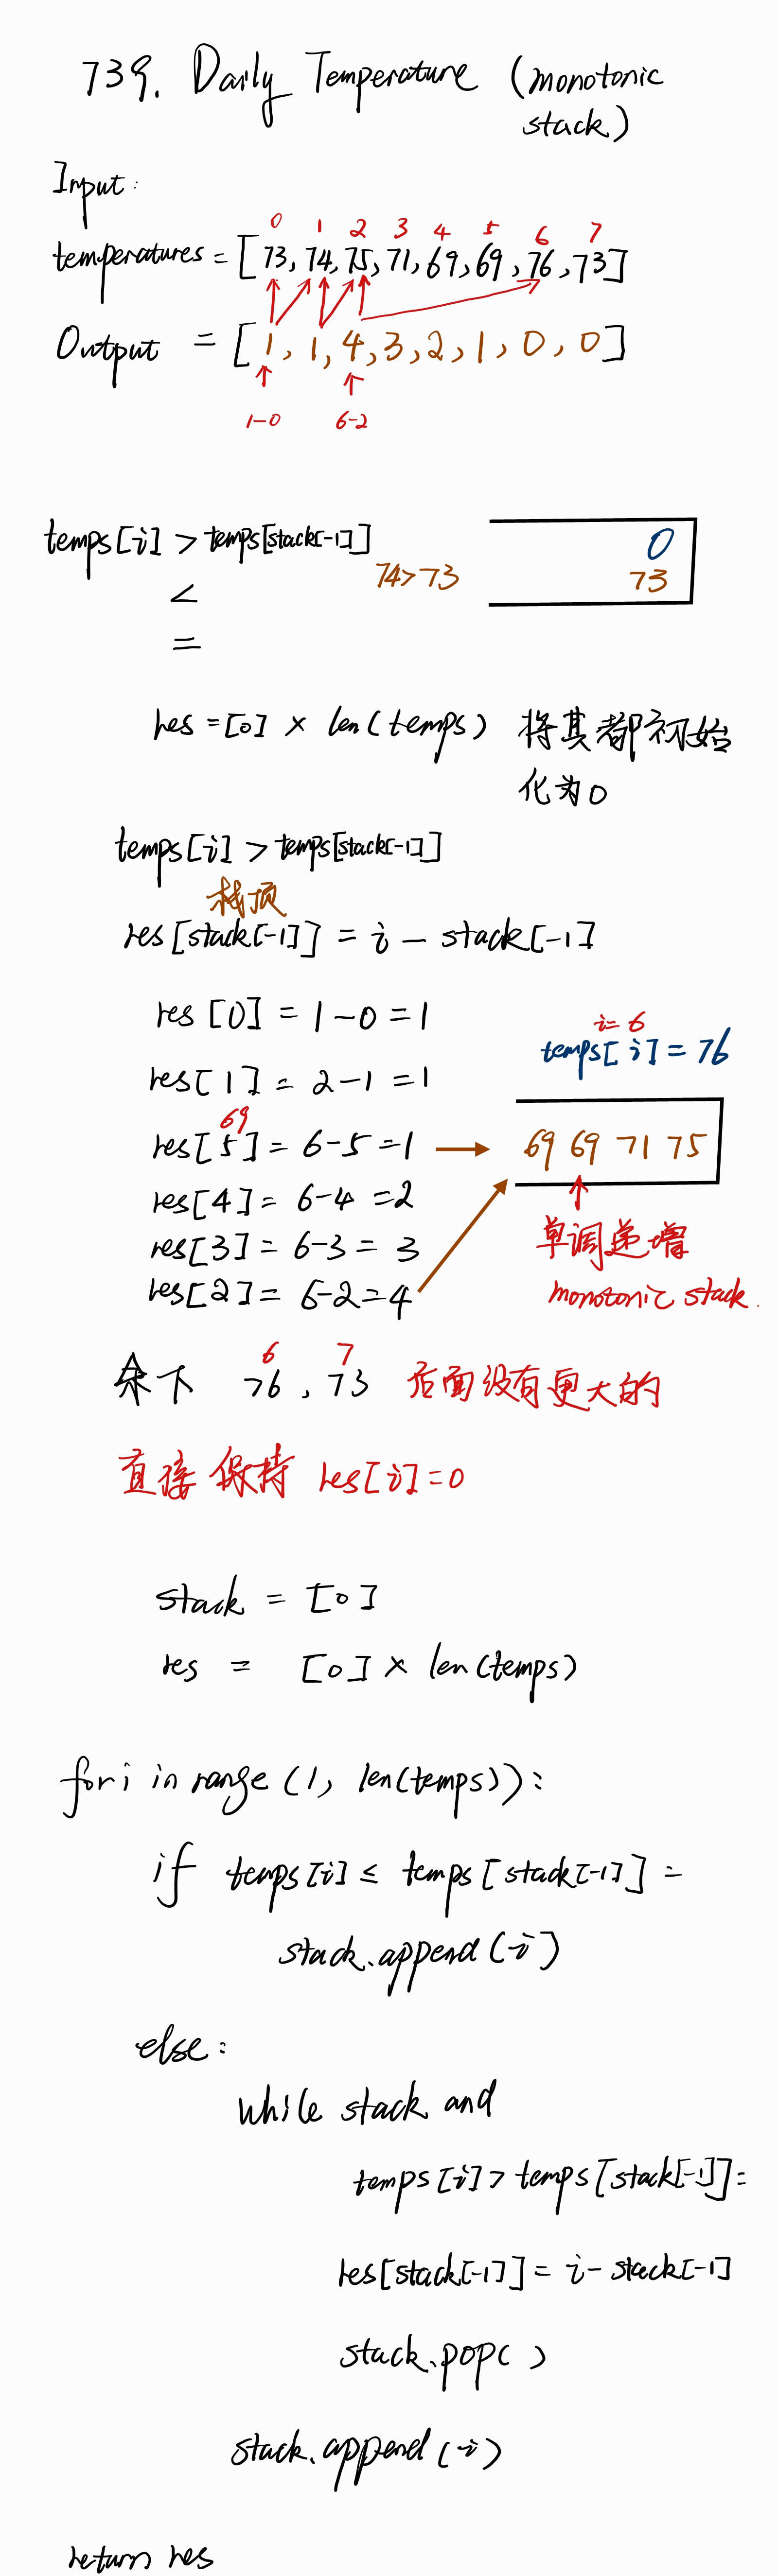 739. Daily Temperature (monotonic
stack)
Input:
0 1 2 3 4 5 6 7
temperatures = [73, 74, 75, 71, 69, 69, 76, 73]
Output = [1, 1, 4, 3, 2, 1, 0, 0]
1-0 6-2
temps[i] > temps[stack[-1]]
0
74>73 73
<
=
res = [0] × len(temps) 将其都初始
化为0
temps[i] > temps[stack[-1]]
栈顶
res[stack[-1]] = i - stack[-1]
res[0] = 1-0 = 1
i=6
temps[i] = 76
res[1] = 2-1 = 1
69
res[5] = 6-5 = 1
69 69 71 75
res[4] = 6-4 = 2
res[3] = 6-3 = 3
单调递增
res[2] = 6-2 = 4
monotonic stack.
6 7
余下 76, 73 后面没有更大的
直接保持 res[i] = 0
stack = [0]
res = [0] × len(temps)
for i in range (1, len(temps)):
if temps[i] ≤ temps[stack[-1]]:
stack.append(i)
else:
while stack and
temps[i] > temps[stack[-1]]:
res[stack[-1]] = i - stack[-1]
stack.pop( )
stack.append(i)
return res